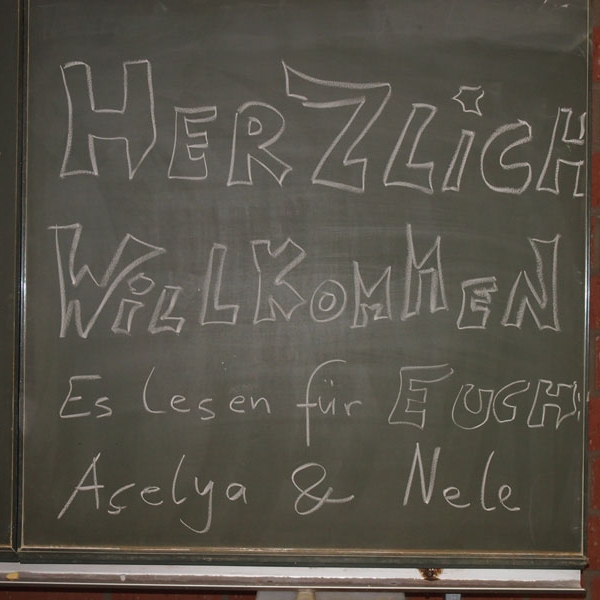 HERZLiCH
WiLLKOMMEN
Es lesen für EUCH:
Açelya & Nele